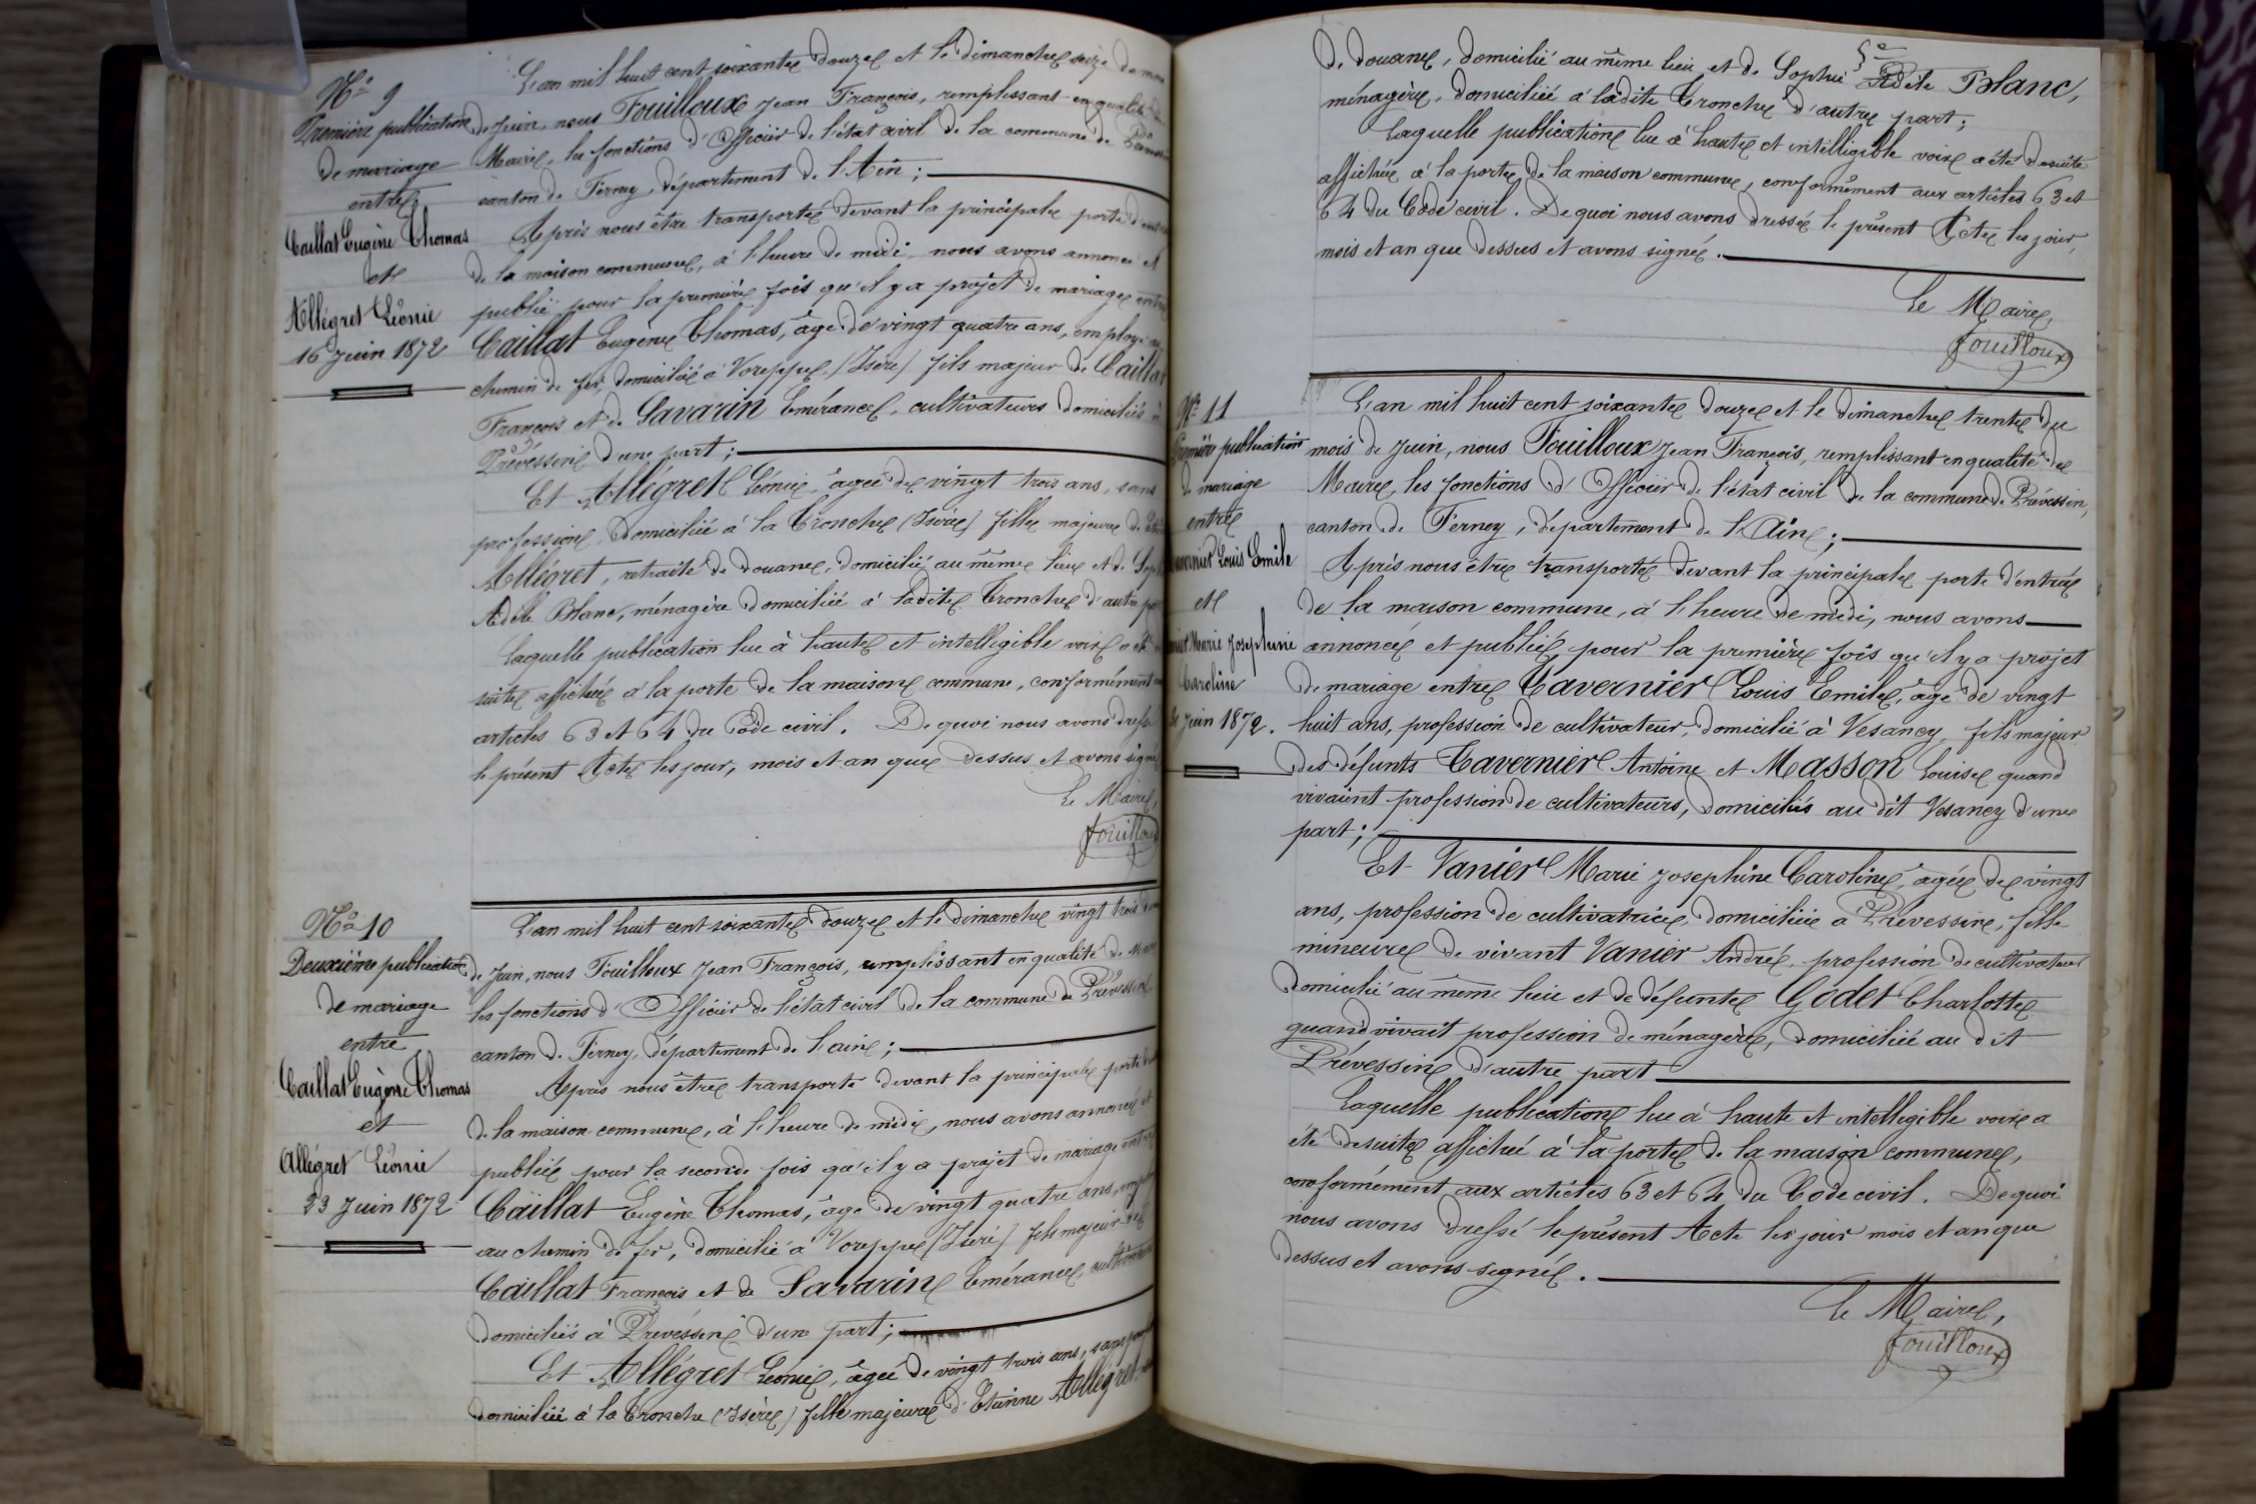 Nº 9
Première publication
de mariage
entre
Caillat Eugène Thomas
et
Allégret Léonie
16 Juin 1872
L'an mil huit cent soixante douze et le dimanche seize du mois
de Juin, nous Fouilloux Jean François, remplissant en qualité de
Maire, les fonctions d'Officier de l'état civil de la commune de
canton de Ferney, département de l'Ain ;
Après nous être transporté devant la principale porte d'entrée
de la maison commune, à l'heure de midi, nous avons annoncé et
publié pour la première fois qu'il y a projet de mariage entre
Caillat Eugène Thomas, âgé de vingt quatre ans, employé au
chemin de fer, domicilié à Voreppe, (Isère) fils majeur de Caillat
François et de Savarin Emérance, cultivateurs domiciliés à
Prévessin d'une part ;
Et Allégret Léonie, âgée de vingt trois ans, sans
profession, domiciliée à la Tronche (Isère) fille majeure de
Allégret, retraité de douane, domicilié au même lieu et de
Adèle Blanc, ménagère domiciliée à ladite Tronche d'autre part
Laquelle publication lue à haute et intelligible voix a été
suite affichée à la porte de la maison commune, conformément aux
articles 63 et 64 du Code civil. De quoi nous avons dressé
le présent Acte les jour, mois et an que dessus et avons signé
Le Maire,
Fouilloux
Nº 10
Deuxième publication
de mariage
entre
Caillat Eugène Thomas
et
Allégret Léonie
23 Juin 1872
L'an mil huit cent soixante douze et le dimanche vingt trois du mois
de Juin, nous Fouilloux Jean François, remplissant en qualité de Maire
les fonctions d'Officier de l'état civil de la commune de Prévessin
canton de Ferney, département de l'ain ;
Après nous être transporté devant la principale porte
de la maison commune, à l'heure de midi, nous avons annoncé et
publié pour la seconde fois qu'il y a projet de mariage entre
Caillat Eugène Thomas, âgé de vingt quatre ans, employé
au chemin de fer, domicilié à Voreppe (Isère) fils majeur de
Caillat François et de Savarin Emérance, cultivateurs
domiciliés à Prévessin d'une part ;
Et Allégret Léonie, âgée de vingt trois ans, sans
domiciliée à la Tronche (Isère) fille majeure d'Etienne Allégret
de douane, domicilié au même lieu et de Sophie Adèle Blanc,
ménagère, domiciliée à ladite Tronche d'autre part ;
Laquelle publication lue à haute et intelligible voix a été desuite
affichée à la porte de la maison commune, conformément aux articles 63 et
64 du Code civil. De quoi nous avons dressé le présent Acte les jour,
mois et an que dessus et avons signé.
Le Maire,
Fouilloux
Nº 11
Première publication
de mariage
entre
Tavernier Louis Emile
et
Vanier Marie Josephine
Caroline
30 Juin 1872.
L'an mil huit cent soixante douze et le dimanche trente du
mois de Juin, nous Fouilloux Jean François, remplissant en qualité de
Maire, les fonctions d'Officier de l'état civil de la commune de Prévessin,
canton de Ferney, département de l'Ain ;
Après nous être transporté devant la principale porte d'entrée
de la maison commune, à l'heure de midi, nous avons
annoncé et publié pour la première fois qu'il y a projet
de mariage entre Tavernier Louis Emile, âgé de vingt
huit ans, profession de cultivateur, domicilié à Vesancy, fils majeur
des défunts Tavernier Antoine et Masson Louise quand
vivaient profession de cultivateurs, domiciliés au dit Vesancy d'une
part ;
Et Vanier Marie Josephine Caroline, âgée de vingt
ans, profession de cultivatrice, domiciliée à Prévessin, fille
mineure de vivant Vanier André, profession de cultivateur
domicilié au même lieu et de défunte Godet Charlotte
quand vivait profession de ménagère, domiciliée au dit
Prévessin d'autre part
Laquelle publication lue à haute et intelligible voix a
été desuite affichée à la porte de la maison commune,
conformément aux articles 63 et 64 du Code civil. De quoi
nous avons dressé le présent Acte les jour mois et an que
dessus et avons signé.
Le Maire,
Fouilloux